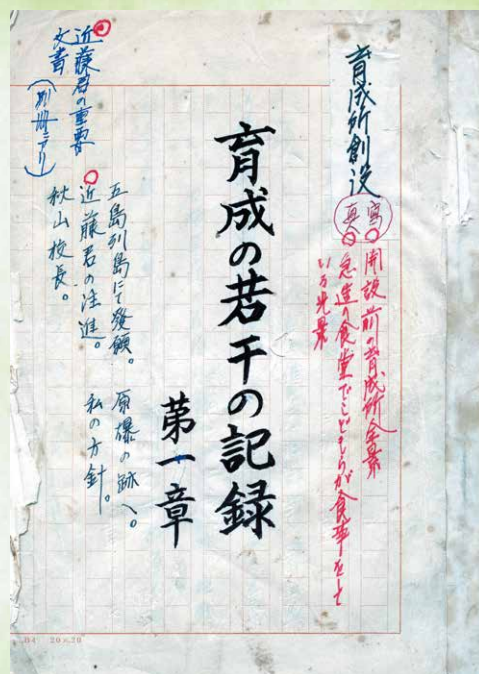 育成所創設
写真
開設前の育成所全景
急造の食堂でこどもらが食事をして
いる光景
育成の若干の記録
第一章
五島列島にて發願。 原爆の跡へ。
近藤君の注進。 私の方針。
秋山校長。
近藤君の重要
文書
(別冊ニアリ)
B4 20×20